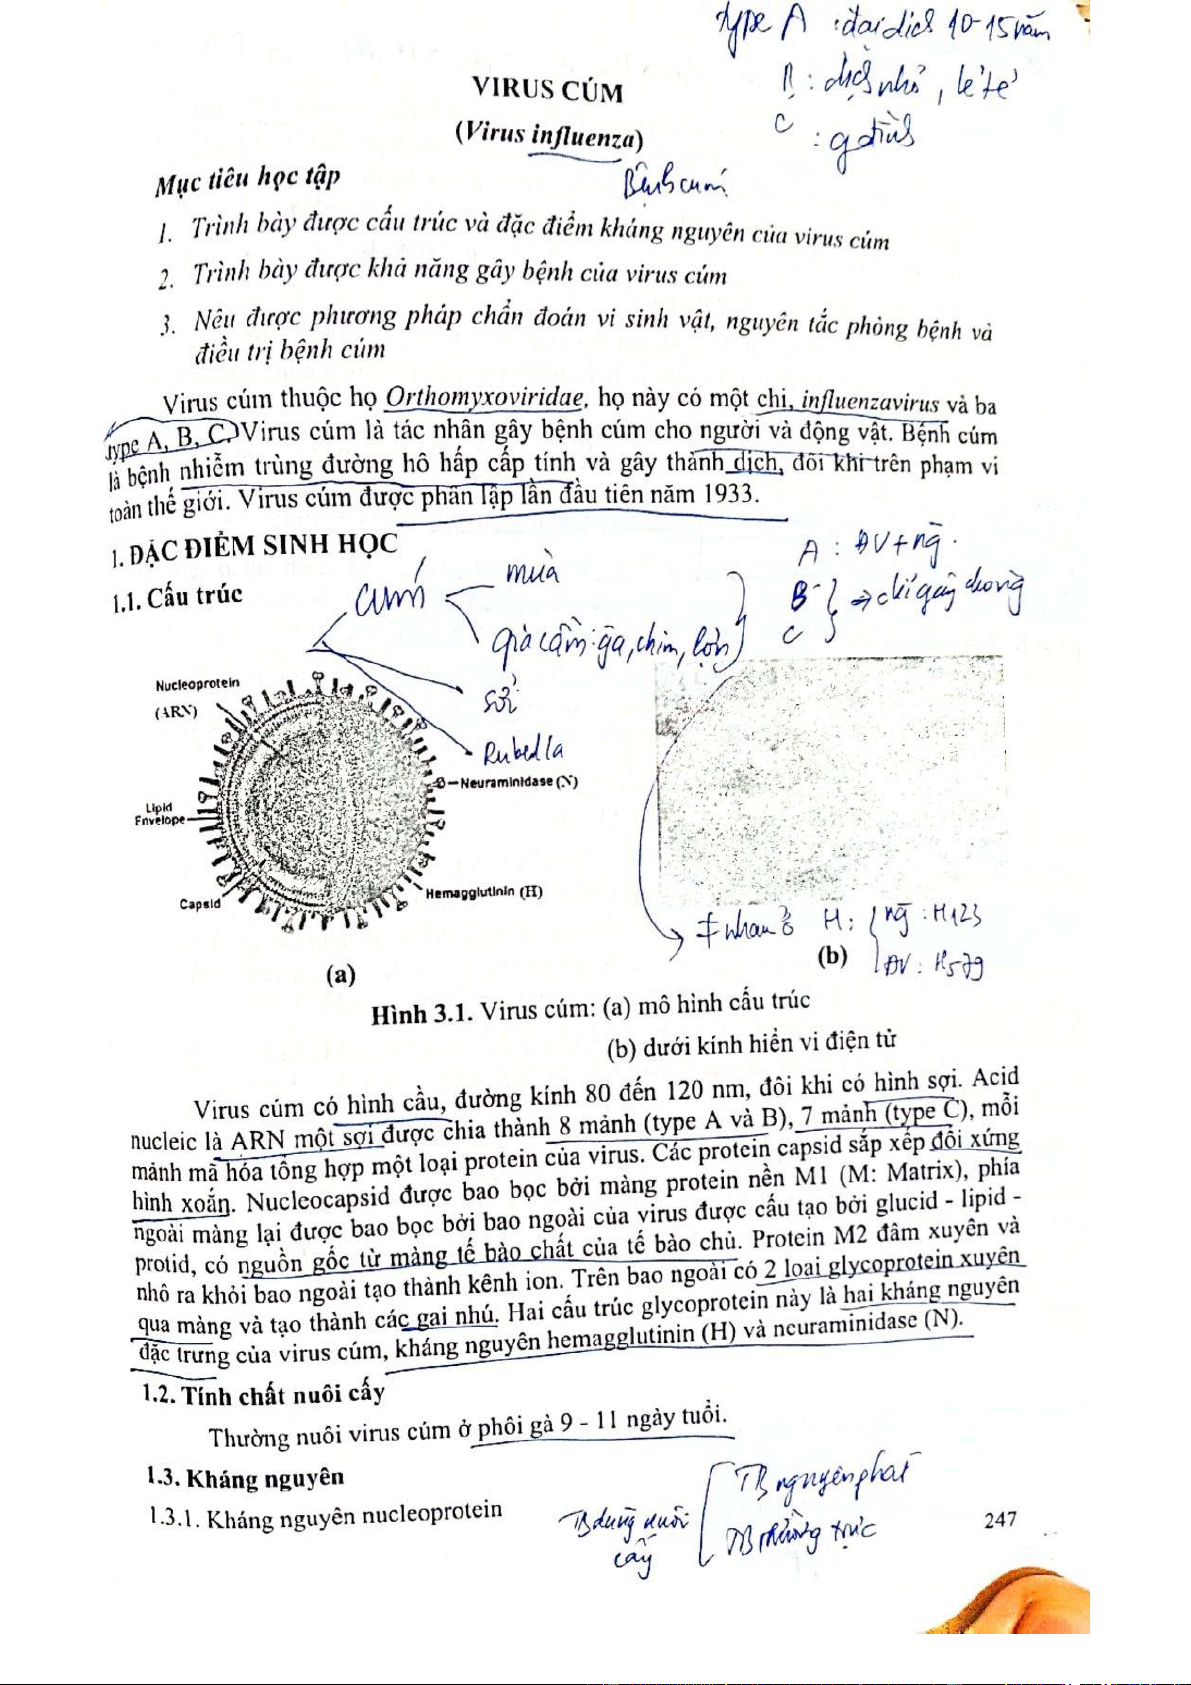 type A : đại dịch 10-15 năm
VIRUS CÚM
B : dịch nhỏ, lẻ tẻ
(Virus influenza)
C : g đình
Mục tiêu học tập
Bệnh cúm
1. Trình bày được cấu trúc và đặc điểm kháng nguyên của virus cúm
2. Trình bày được khả năng gây bệnh của virus cúm
3. Nêu được phương pháp chẩn đoán vi sinh vật, nguyên tắc phòng bệnh và
điều trị bệnh cúm
Virus cúm thuộc họ Orthomyxoviridae, họ này có một chi, influenzavirus và ba
type A, B, C. Virus cúm là tác nhân gây bệnh cúm cho người và động vật. Bệnh cúm
là bệnh nhiễm trùng đường hô hấp cấp tính và gây thành dịch, đôi khi trên phạm vi
toàn thế giới. Virus cúm được phân lập lần đầu tiên năm 1933.
1. ĐẶC ĐIỂM SINH HỌC
A : ĐV + ng.
1.1. Cấu trúc
cúm
mùa
B
C
⇒ chỉ gây
gia cầm: gà, chim, lợn
sởi
Rubella
Nucleoprotein
(ARN)
Neuraminidase (N)
Lipid
Envelope
Hemagglutinin (H)
Capsid
≠ nhau ở H: ng : H123
ĐV : H579
(a)
(b)
Hình 3.1. Virus cúm: (a) mô hình cấu trúc
(b) dưới kính hiển vi điện tử
Virus cúm có hình cầu, đường kính 80 đến 120 nm, đôi khi có hình sợi. Acid
nucleic là ARN một sợi được chia thành 8 mảnh (type A và B), 7 mảnh (type C), mỗi
mảnh mã hóa tổng hợp một loại protein của virus. Các protein capsid sắp xếp đối xứng
hình xoắn. Nucleocapsid được bao bọc bởi màng protein nền M1 (M: Matrix), phía
ngoài màng lại được bao bọc bởi bao ngoài của virus được cấu tạo bởi glucid - lipid -
protid, có nguồn gốc từ màng tế bào chất của tế bào chủ. Protein M2 đâm xuyên và
nhô ra khỏi bao ngoài tạo thành kênh ion. Trên bao ngoài có 2 loại glycoprotein xuyên
qua màng và tạo thành các gai nhú. Hai cấu trúc glycoprotein này là hai kháng nguyên
đặc trưng của virus cúm, kháng nguyên hemagglutinin (H) và neuraminidase (N).
1.2. Tính chất nuôi cấy
Thường nuôi virus cúm ở phôi gà 9 - 11 ngày tuổi.
1.3. Kháng nguyên
1.3.1. Kháng nguyên nucleoprotein
TB dùng nuôi
cấy
TB nguyên phát
TB thường trực
247